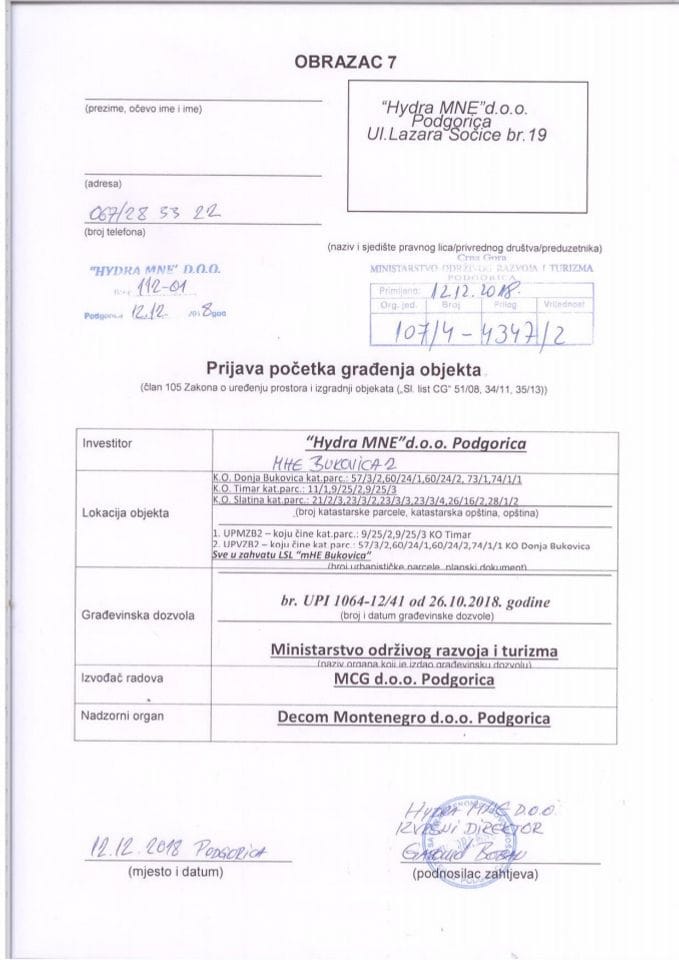 OBRAZAC 7
(prezime, očevo ime i ime)
"Hydra MNE"d.o.o.
Podgorica
Ul.Lazara Sočice br.19
(adresa)
067/28 53 22
(broj telefona)
(naziv i sjedište pravnog lica/privrednog društva/preduzetnika)
"HYDRA MNE" D.O.O.
Broj 112-01
Podgorica 12.12. 2018 god
Crna Gora
MINISTARSTVO ODRŽIVOG RAZVOJA I TURIZMA
PODGORICA
Primljeno: 12.12.2018.
Org. jed. Broj Prilog Vrijednost
107/4-4347/2
Prijava početka građenja objekta
(član 105 Zakona o uređenju prostora i izgradnji objekata („Sl. list CG" 51/08, 34/11, 35/13))
Investitor
"Hydra MNE"d.o.o. Podgorica
MHE BUKOVICA 2
Lokacija objekta
K.O. Donja Bukovica kat.parc.: 57/3/2,60/24/1,60/24/2, 73/1,74/1/1
K.O. Timar kat.parc.: 11/1,9/25/2,9/25/3
K.O. Slatina kat.parc.: 21/2/3,23/3/2,23/3/3,23/3/4,26/16/2,28/1/2
(broj katastarske parcele, katastarska opština, opština)
1. UPMZB2 – koju čine kat.parc.: 9/25/2,9/25/3 KO Timar
2. UPVZB2 – koju čine kat parc.: 57/3/2,60/24/1,60/24/2,74/1/1 KO Donja Bukovica
Sve u zahvatu LSL "mHE Bukovica"
(broj urbanističke parcele, planski dokument)
Građevinska dozvola
br. UPI 1064-12/41 od 26.10.2018. godine
(broj i datum građevinske dozvole)
Ministarstvo održivog razvoja i turizma
(naziv organa koji je izdao građevinsku dozvolu)
Izvođač radova
MCG d.o.o. Podgorica
Nadzorni organ
Decom Montenegro d.o.o. Podgorica
HYDRA MNE D.O.O
IZVRŠNI DIREKTOR
12.12.2018 PODGORICA
(mjesto i datum)
(podnosilac zahtjeva)